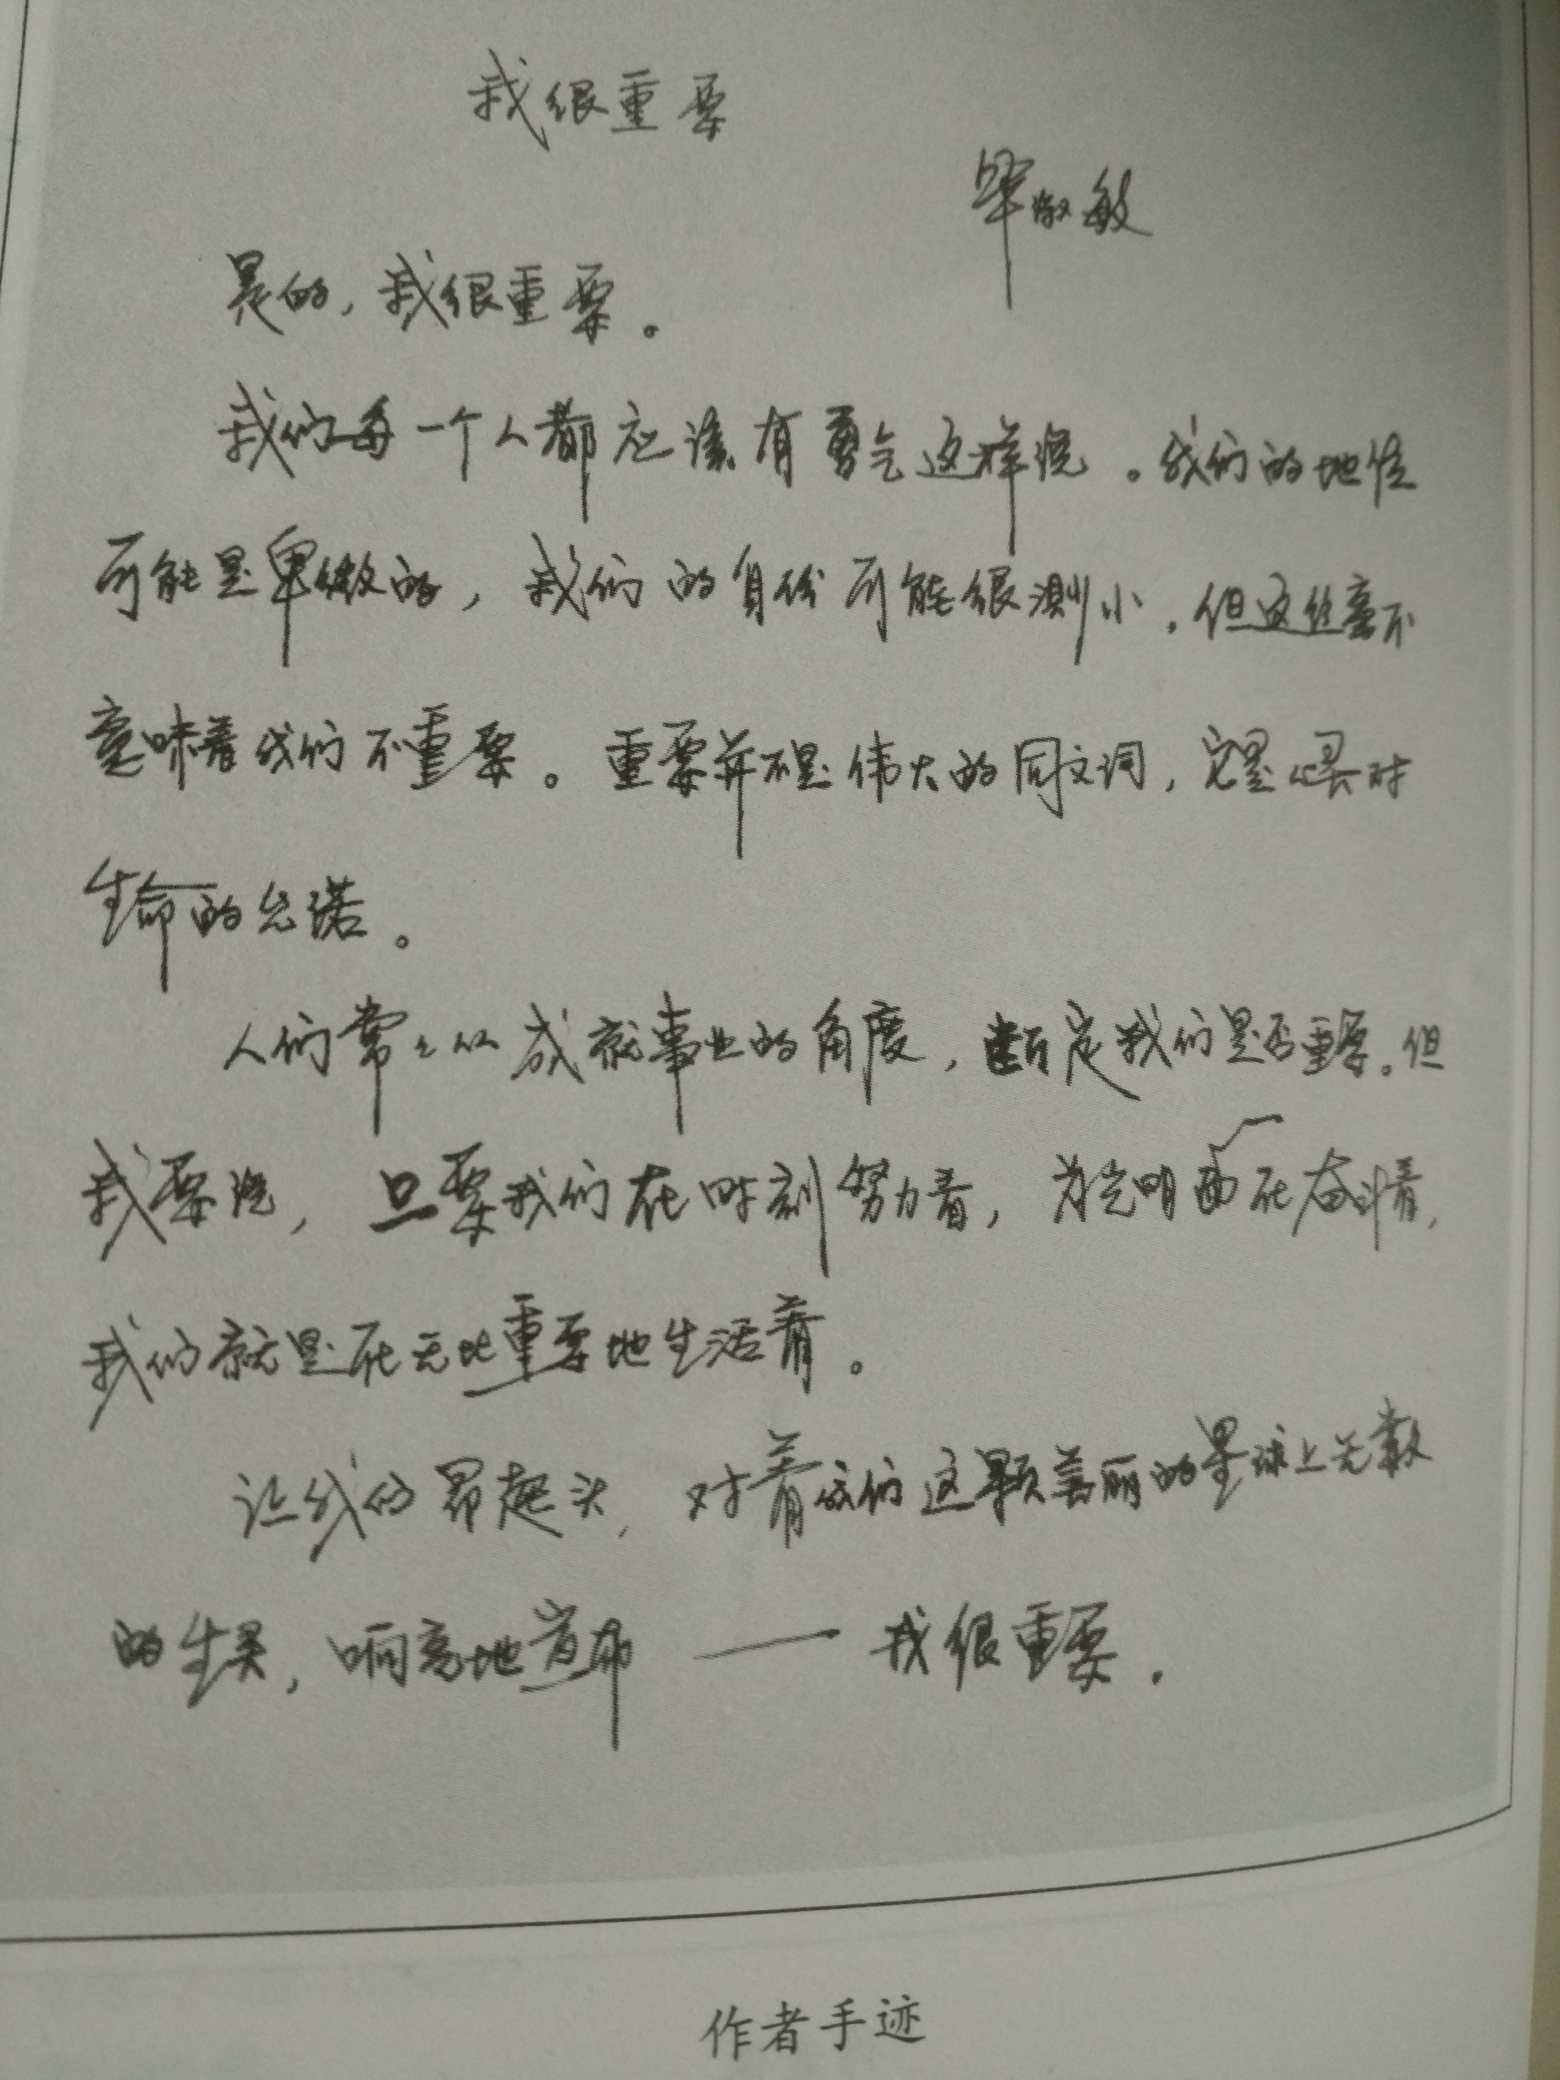 我很重要
毕淑敏
是的，我很重要。
我们每一个人都应该有勇气这样说。我们的地位
可能是卑微的，我们的身份可能很渺小，但这丝毫不
意味着我们不重要。重要并不是伟大的同义词，它是心灵对
生命的允诺。
人们常常从成就事业的角度，断定我们是否重要。但
我要说，只要我们在时刻努力着，为光明而在奋斗着，
我们就是在无比重要地生活着。
让我们昂起头，对着我们这颗美丽的星球上无数
的生灵，响亮地宣布——我很重要。
作者手迹